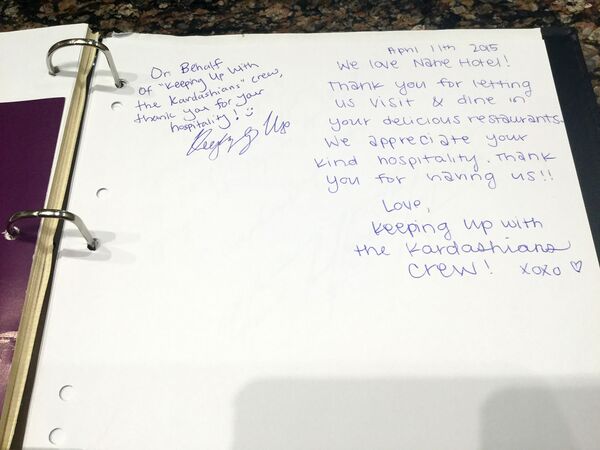 On Behalf
Of "Keeping Up With
the Kardashians" crew,
thank you for your
hospitality!
April 11th 2015
We love Nane Hotel!
Thank you for letting
us visit & dine in
your delicious restaurants.
We appreciate your
kind hospitality. Thank
you for having us!!
Love,
Keeping Up with
the Kardashians
crew! xoxo ♡